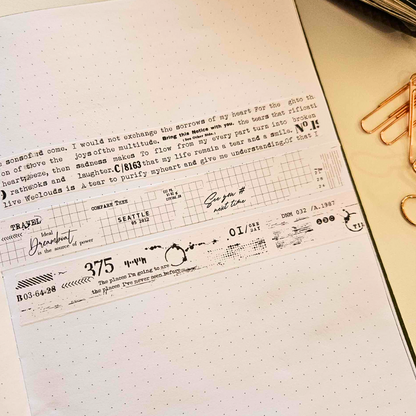 sons of
ad come. I would not exchange the sorrows of my heart For the
above the joys of the multitude. Bring this Notice with you. the tears that
then sadness makes To flow from my every part turn into
and laughter. C/8163 that my life remain a tear and a smile. No.
live We clouds is A tear to Purify my heart and give me understanding. Of that
TRAVEL
COMPARE THEN
SEATTLE
05 2012
See you #
next time
Ideal
Dreamboat
is the source of power
375
The places I'm going to are
the places I've never seen before
B03-64-28
01/SEB
SAT
DNM 032 /A.1987